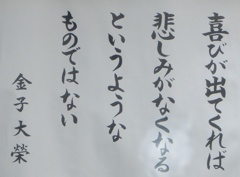 喜びが出てくれば
悲しみがなくなる
というような
ものではない
金子大榮